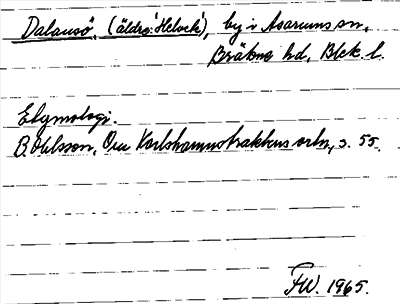 Dalansö, (äldre: Helvek), by i Asarums sn,
Bräkne hd, Blek. l.
Etymologi.
B. Ohlsson, Om Karlshamnstraktens ortn., s. 55.
FW. 1965.